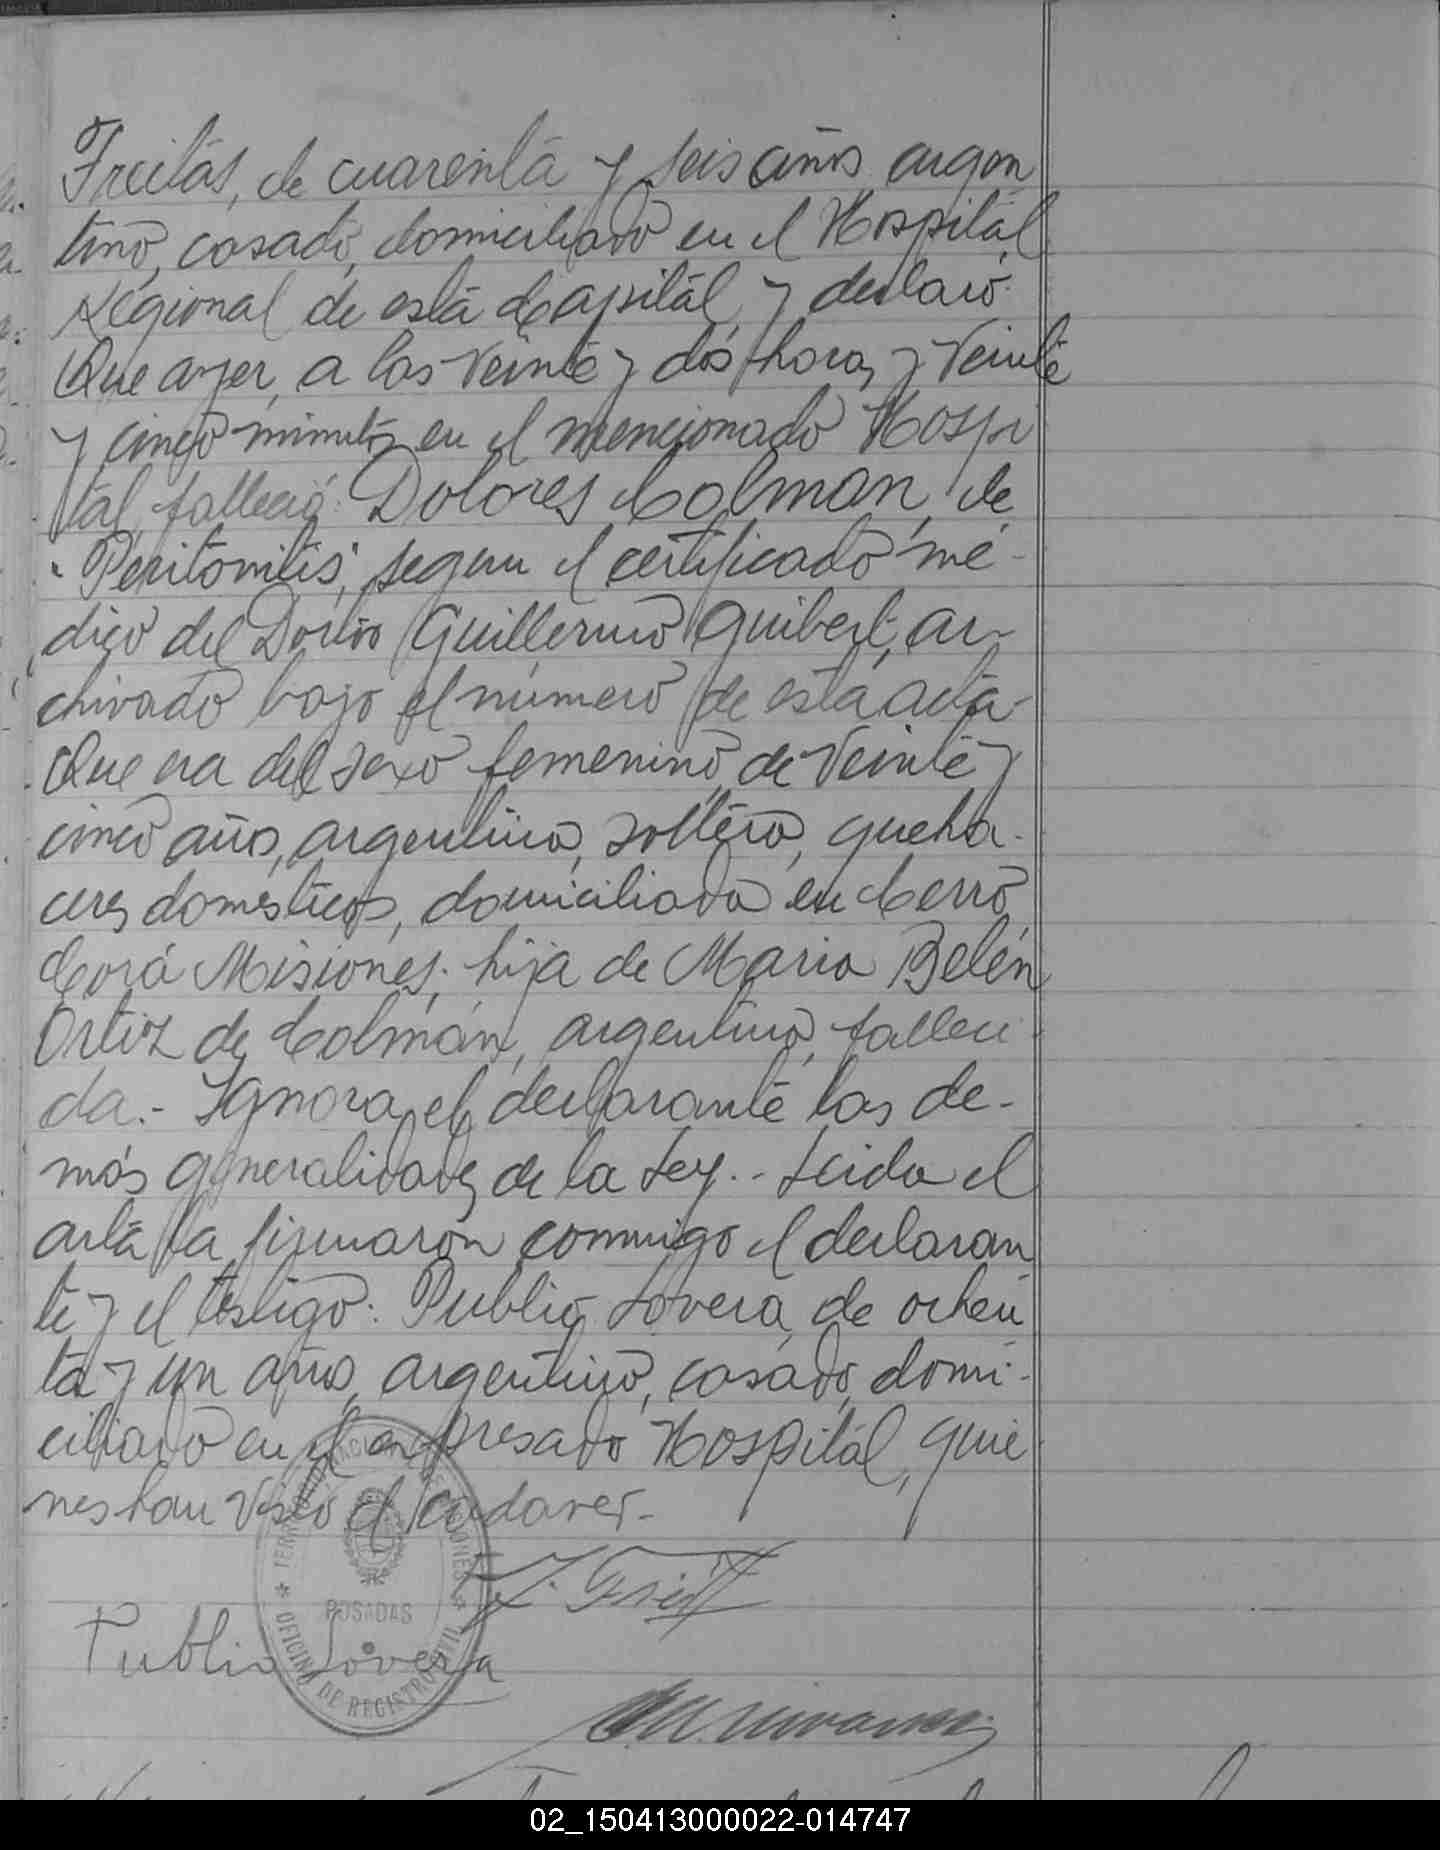 Freitas, de cuarenta y seis años, argen
tino, casado, domiciliado en el Hospital
Regional de esta Capital, y declaró:
Que ayer, a las veinte y dos horas y veinte
y cinco minutos en el mencionado Hospi
tal, falleció: Dolores Colman, de
"Peritonitis", segun el certificado mé-
dico del Doctor Guillermo Guibert, ar-
chivado bajo el número de esta acta-
Que era del sexo femenino, de veinte y
cinco años, argentina, soltera, queha-
ceres domésticos, domiciliada en Cerro
Corá Misiones; hija de Maria Belén
Ortiz de Colmán, argentina, falleci-
da.- Ignora el declarante las de-
más generalidades de la Ley.- Leida el
acta la firmaron conmigo el declaran
te y el testigo: Publio Lovera, de ochen
ta y un años, argentino, casado, domi-
ciliado en el expresado Hospital, quie
nes han visto el cadaver.-
TERRITORIO NACIONAL DE MISIONES
POSADAS
OFICINA DE REGISTRO CIVIL
Publio Lovera
02_150413000022-014747